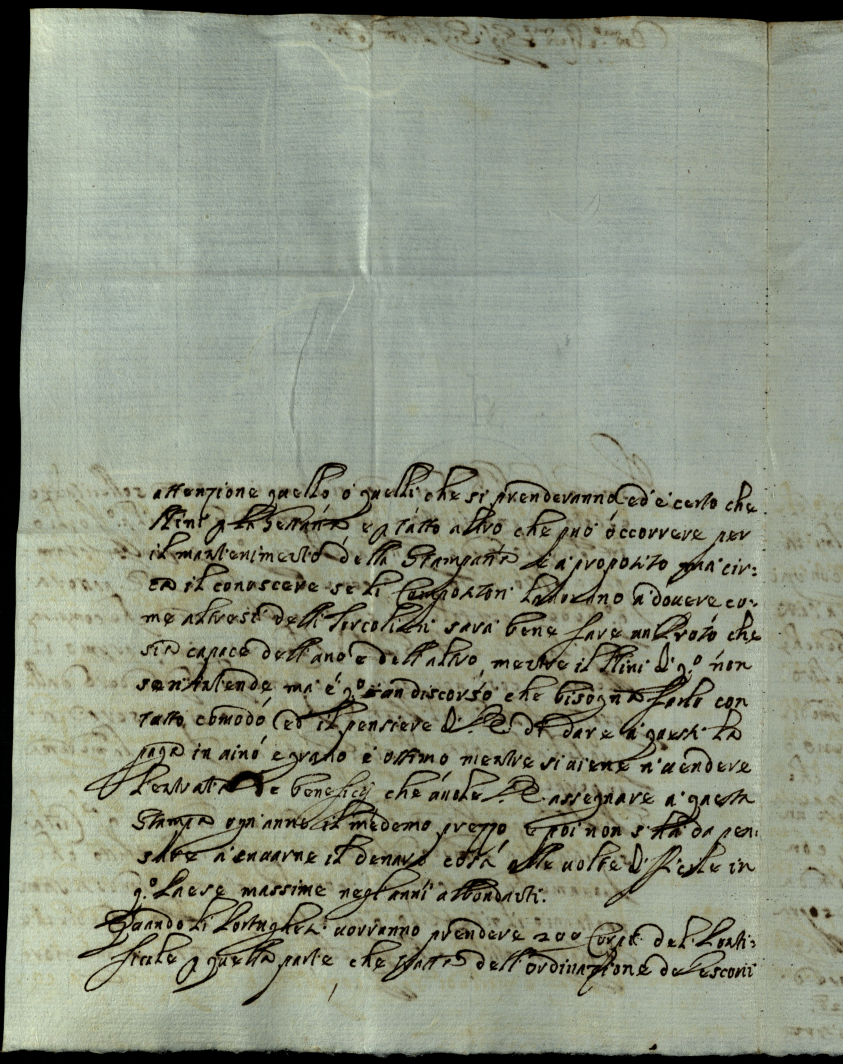 attenzione quello ó quelli che si prenderanno ed é certo che
Mini p la e p tutto altro che può occorrere per
il mantenimento della Stamparia é a proposito ma cir:
ca il conoscere se li Compositori lavorano a dovere co:
me altresi delli Torcolieri sara bene fare un Proto che
sia capace dell uno e dell altro, mentre il Mini di q.o non
se n'intende ma é q.o un discorso che bisogna farlo con
tutto comodo ed il pensiere di dare a questi la
paga in vino e grano é ottimo mentre si viene a vendere
l'entrata de beneficij che vuole assegnare a questa
Stampa ogn'anno il medemo prezzo e poi non s'ha da pen:
sare a cavarne il denaro cosa alle volte difficile in
q.o Paese massime negl'anni abbondanti.
Quando li Portughesi vorranno prendere 200 Corpi del Ponti:
ficale p quella parte che tratta dell'ordinazione de Vescovi